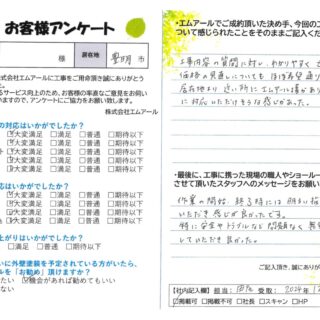 お客様アンケート
様
居在地
豊明 市
株式会社エムアールに工事をご用命頂き誠にありがとう
るサービス向上のため、お客様の率直なご意見をお伺い
いますので、アンケートにご協力をお願い致します。
株式会社エムアール
の対応はいかがでしたか?
大変満足 □満足 □普通 □期待以下
大変満足 □満足 □普通 □期待以下
大変満足 □満足 □普通 □期待以下
応はいかがでしたか?
大変満足 □満足 □普通 □期待以下
大変満足 □満足 □普通 □期待以下
大変満足 □満足 □普通 □期待以下
上がりはいかがでしたか?
大変満足 □満足 □普通 □期待以下
いに外壁塗装を予定されている方がいたら、
ルを「お勧め」頂けますか?
機会があれば勧めてもいい
ない
・エムアールでご成約頂いた決め手、今回の工
ついて感じられたことをそのままご記入くださ
工事内容の質問に対し、わかりやすく
価格の見直しについても ほぼ希望通り
居在地より 近い所に エムアール様があり
に対応いただけそうな感じがあった。
・最後に、工事に携った現場の職人やショールー
させて頂いたスタッフへのメッセージをお願い
作業の開始、終了時には 明るい
いただき 感じが良かったです。
特に 安全やトラブルなど 問題なく 無
していただき 良かった。
ご記入頂き、誠にありが
【社内記入欄】 担当: 受取: 2024年
掲載可 □掲載不可 □社長 □スキャン □HP